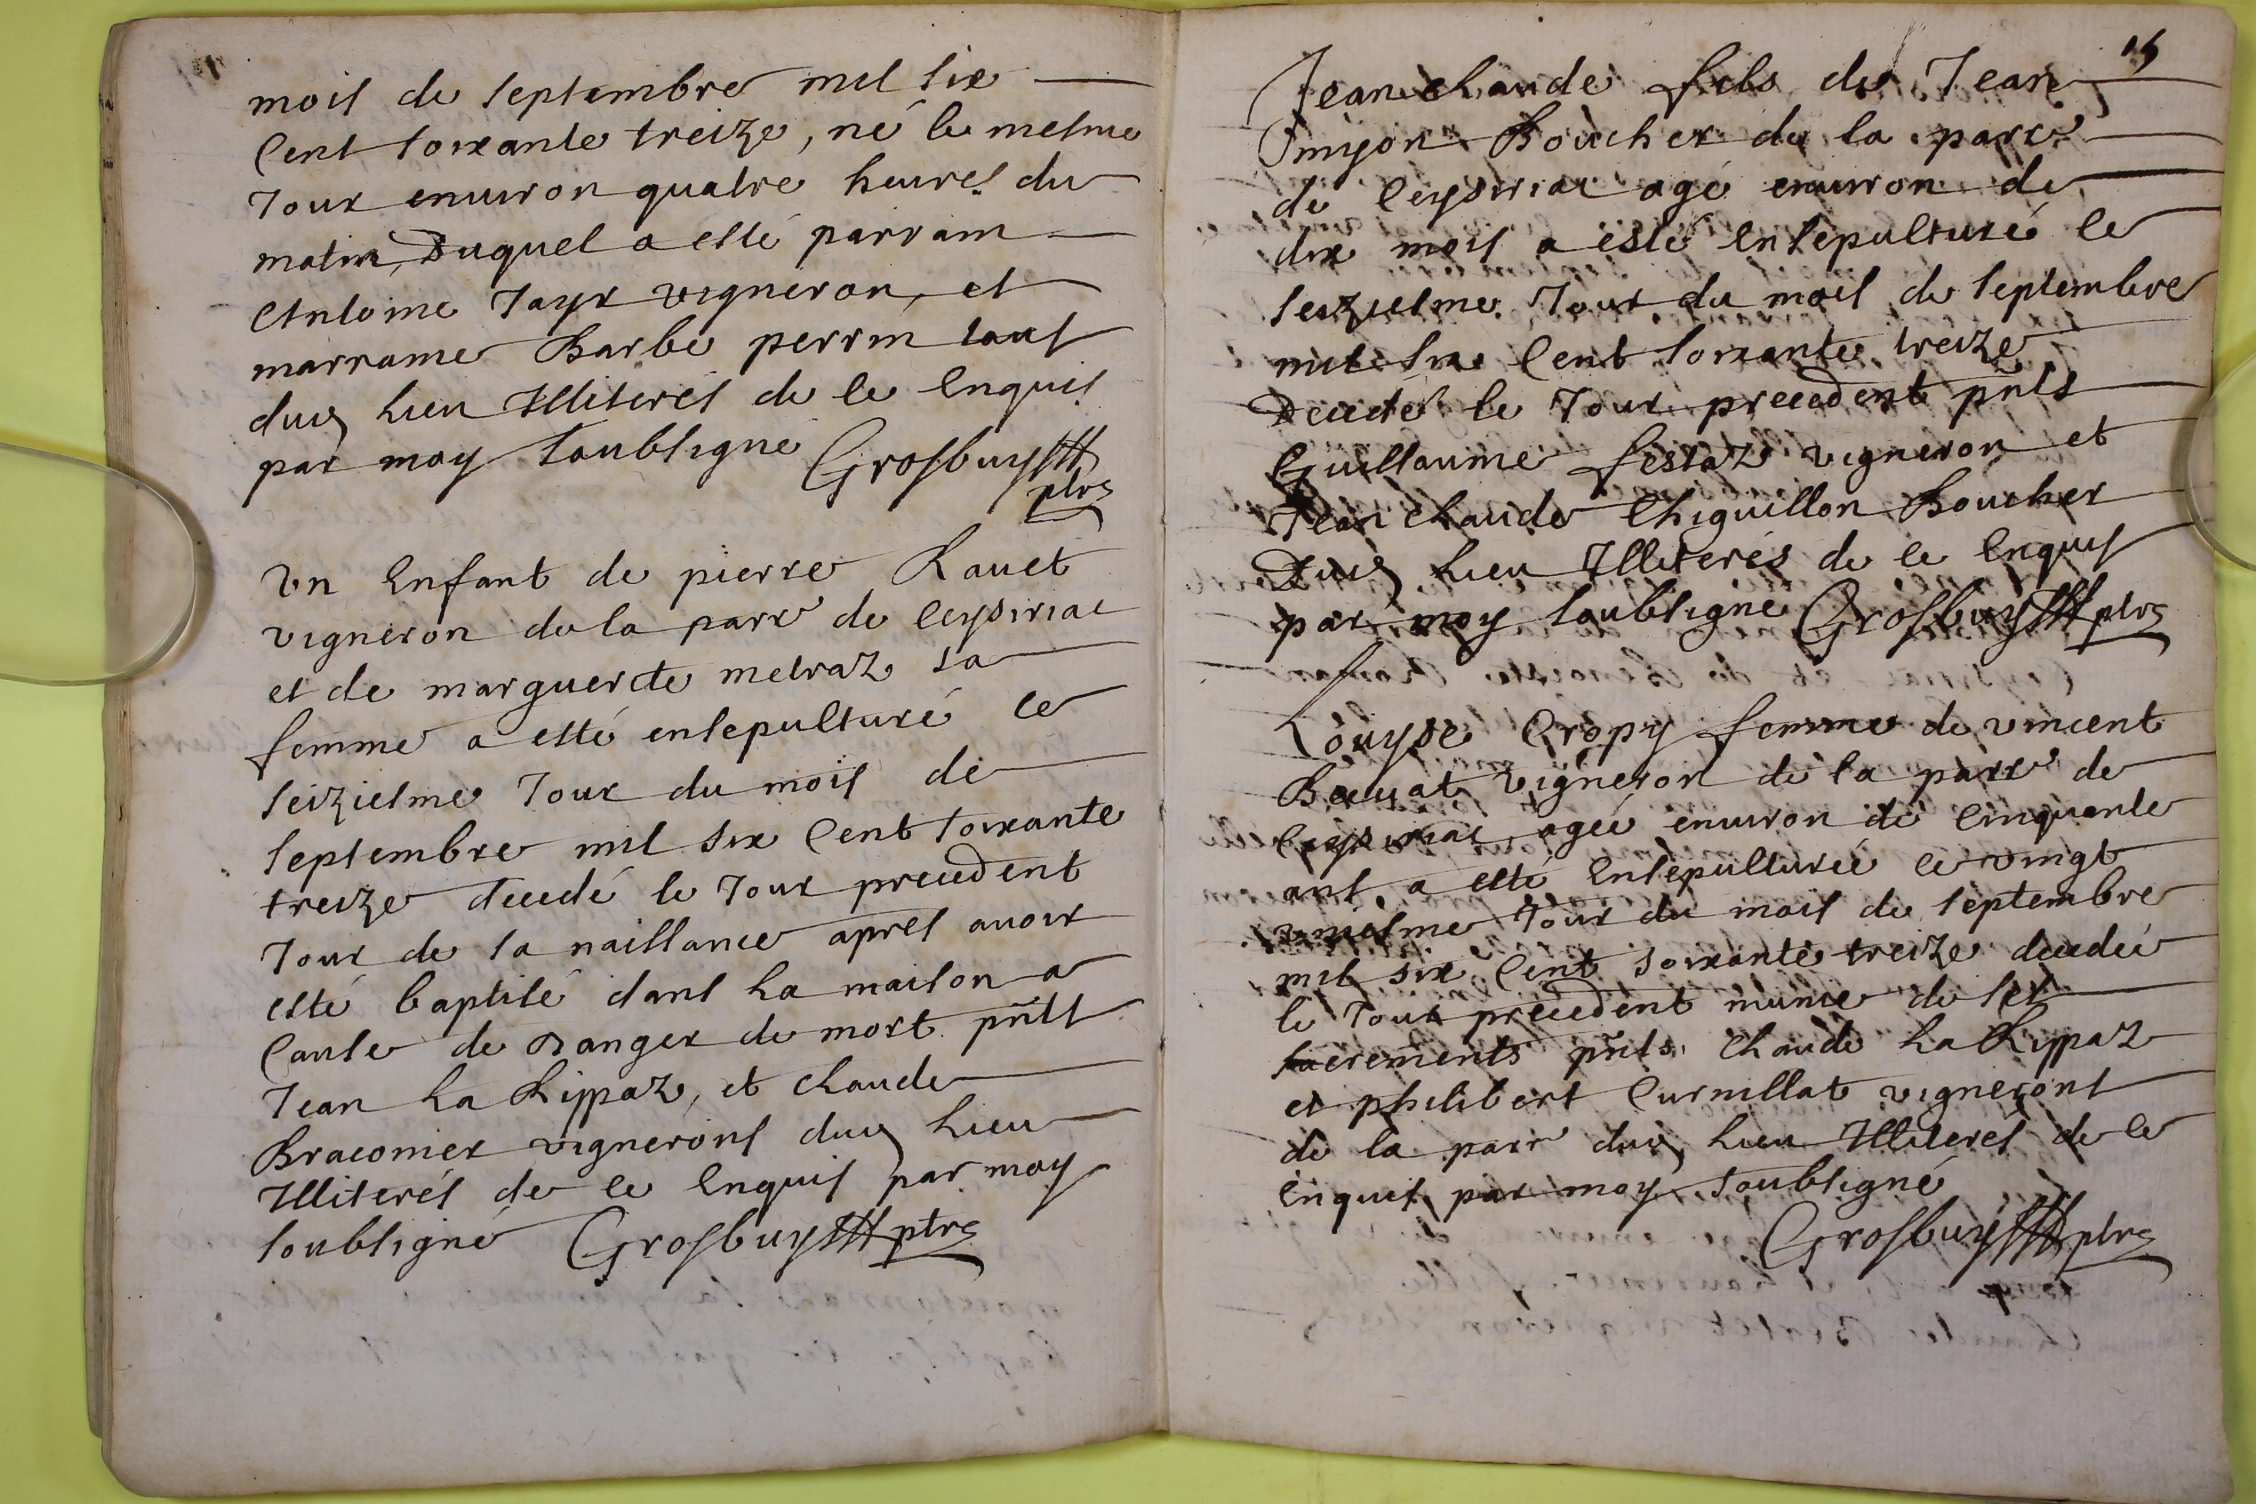 mois de septembre mil six
Cent soixante treize, né le mesme
Jour enuiron quatre heures du
matin, Duquel a esté parrain
Antoine Jayr vigneron, et
marraine Barbe perrin tous
dud lieu Illiterés de ce Enquis
par moy soubsigné Grosbuys
ptre
Vn Enfant de pierre Rauet
vigneron de la parr de Ceysiriac
et de marguerite metraz sa
femme a esté ensepulturé ce
seiziesme Jour du mois de
septembre mil six Cent soixante
treize decedé le Jour precedent
Jour de sa naissance apres auoir
esté baptisé dans la maison a
Cause de Danger de mort pnts
Jean La Rippaz, et Claude
Braconier vignerons dud Lieu
Illiterés de ce Enquis par moy
soubsigné Grosbuys ptre
15
Jean Claude fils de Jean
Boucher de la parr
de Ceysiriac agé enuiron de
dix mois a esté Ensepulturé le
seiziesme Jour du mois de septembre
mil six Cent soixante treize
Decedé le Jour precedent pnts
Guillaume festaz vigneron et
Jean Claude Chiquillon Boucher
Dud Lieu Illiterés de ce Enquis
par moy soubsigné Grosbuys ptre
Louyse Cropy femme de vincent
vigneron de la parr de
Ceysiriac agée enuiron de Cinquante
ans a esté Ensepulturée ce vingt
uniesme Jour du mois de septembre
mil six Cent soixante treize decedée
le Jour precedent munie de ses
sacrements pnts Claude La Rippaz
et philibert Curnillat vignerons
de la parr dud Lieu Illiterés de ce
Enquis par moy soubsigné
Grosbuys ptre